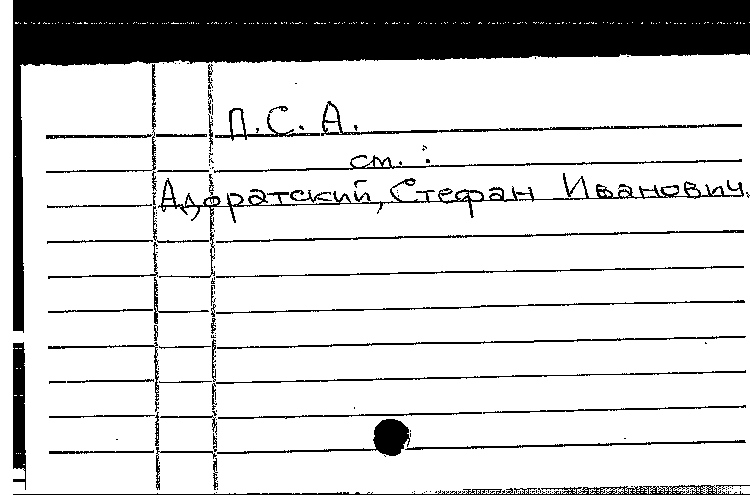 П.С.А.
см. :
Адоратский, Стефан Иванович.